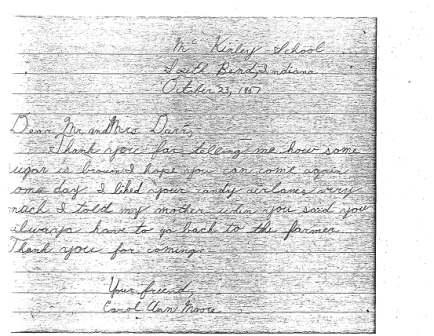 Mc Kinley School
South Bend, Indiana
October 23, 1957
Dear Mr. and Mrs. Darr,
Thank you for telling me how some
sugar is brown I hope you can come again
some day I liked your candy airplanes very
much I told my mother when you said you
always have to go back to the farmer
Thank you for coming.
Your friend,
Carol Ann Moore